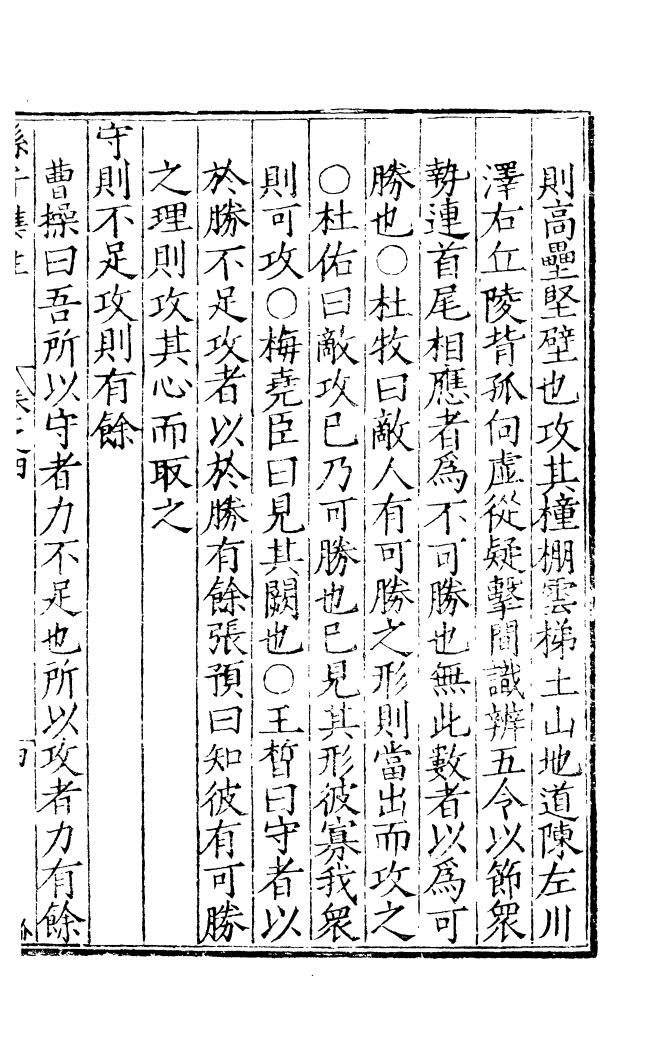 則高壘堅壁也攻其橦棚雲梯土山地道陳左川
澤右丘陵背孤向虛從疑擊閒識辨五令以節衆
勢連首尾相應者爲不可勝也無此數者以爲可
勝也○杜牧曰敵人有可勝之形則當出而攻之
○杜佑曰敵攻已乃可勝也已見其形彼寡我衆
則可攻○梅堯臣曰見其闕也○王晳曰守者以
於勝不足攻者以於勝有餘張預曰知彼有可勝
之理則攻其心而取之
守則不足攻則有餘
曹操曰吾所以守者力不足也所以攻者力有餘